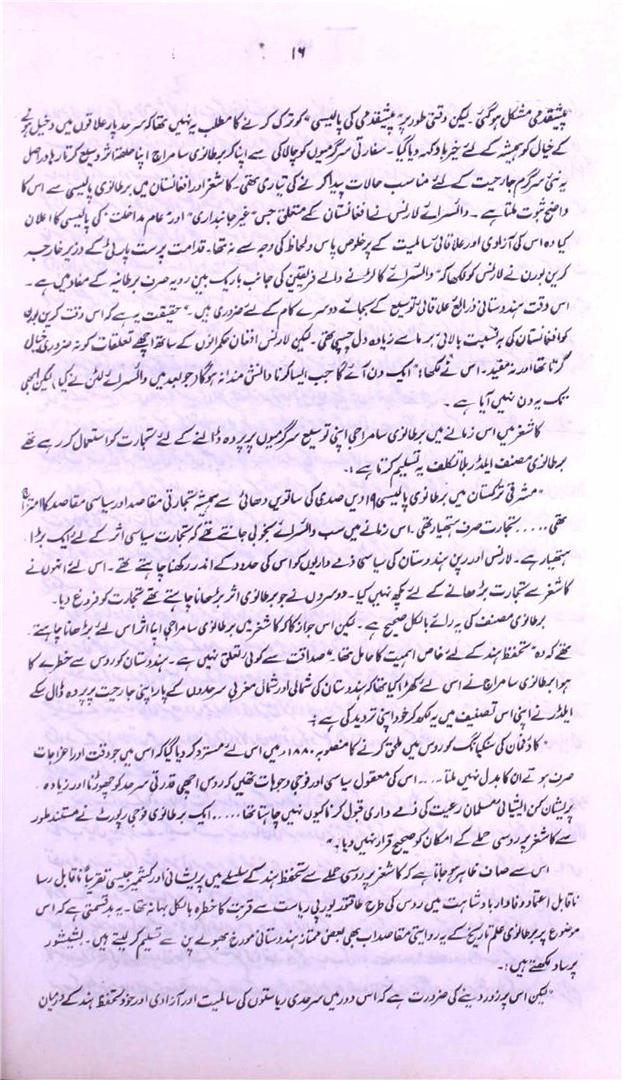 ۱۶
پیشقدمی مشکل ہوگئی۔ لیکن وقتی طور پر "پیشقدمی کی پالیسی" کو ترک کرنے کا مطلب یہ نہیں تھا کہ سرحد پار علاقوں میں دخیل ہونے
کے خیال کو ہمیشہ کے لئے خیرباد کہہ دیا گیا۔ سفارتی سرگرمیوں کو چالاکی سے اپنا کر برطانوی سامراج اپنا حلقۂ اثر وسیع کرتا رہا۔ دراصل
یہ نئی سرگرم جارحیت کے لئے مناسب حالات پیدا کرنے کی تیاری تھی۔ کاشغر اور افغانستان میں برطانوی پالیسی سے اس کا
واضح ثبوت ملتا ہے۔ وائسرائے لارنس نے افغانستان کے متعلق جس "غیر جانبداری" اور "عدم مداخلت" کی پالیسی کا اعلان
کیا وہ اس کی آزادی اور علاقائی سالمیت کے پرخلوص پاس و لحاظ کی وجہ سے نہ تھا۔ قدامت پرست پارٹی کے وزیر خارجہ
کرین بورن نے لارنس کو لکھا کہ "وائسرائے کا لڑنے والے فریقین کی جانب باریک بین رویہ صرف برطانیہ کے مفاد میں ہے۔
اس وقت ہندوستانی ذرائع علاقائی توسیع کے بجائے دوسرے کام کے لئے ضروری ہیں۔" حقیقت یہ ہے کہ اس وقت کرین بورن
کو افغانستان کی بہ نسبت بالائی برما سے زیادہ دل چسپی تھی۔ لیکن لارنس افغان حکمرانوں کے ساتھ اچھے تعلقات کو نہ ضروری خیال
کرتا تھا اور نہ مفید۔ اس نے لکھا: "ایک دن آئے گا جب ایسا کرنا دانش مندانہ ہوگا (جو بعد میں وائسرائے لٹن نے کیا) لیکن ابھی
تک یہ دن نہیں آیا ہے۔"
کاشغر میں اس زمانے میں برطانوی سامراجی اپنی توسیعی سرگرمیوں پر پردہ ڈالنے کے لئے تجارت کو استعمال کر رہے تھے
برطانوی مصنف ایلڈر بلا تکلف یہ تسلیم کرتا ہے:۔
"مشرقی ترکستان میں برطانوی پالیسی ۱۹ ویں صدی کی ساتویں دھائی سے ہمیشہ تجارتی مقاصد اور سیاسی مقاصد کا امتزاج
تھی ..... تجارت صرف ہتھیار تھی۔ اس زمانے میں سب وائسرائے بخوبی جانتے تھے کہ تجارت سیاسی اثر کے لئے ایک بڑا
ہتھیار ہے۔ لارنس اور رپن ہندوستان کی سیاسی ذمے داریوں کو اس کی حدود کے اندر رکھنا چاہتے تھے۔ اس لئے انہوں نے
کاشغر سے تجارت بڑھانے کے لئے کچھ نہیں کیا۔ دوسروں نے جو برطانوی اثر بڑھانا چاہتے تھے تجارت کو فروغ دیا۔
برطانوی مصنف کی یہ رائے بالکل صحیح ہے۔ لیکن اس جواز کا کہ کاشغر میں برطانوی سامراجی اپنا اثر اس لئے بڑھانا چاہتے
تھے کہ وہ "تحفظ ہند کے لئے خاص اہمیت کا حامل تھا۔" صداقت سے کوئی تعلق نہیں ہے۔ ہندوستان کو روس سے خطرے کا
ہوا برطانوی سامراج نے اس لئے کھڑا کیا تھا کہ ہندوستان کی شمالی اور شمال مغربی سرحدوں کے پار اپنی جارحیت پر پردہ ڈال سکے
ایلڈر نے اپنی اس تصنیف میں یہ لکھ کر خود اپنی تردید کی ہے:۔
"کاؤفمان کی سنکیانگ کو روس میں ملحق کرنے کا منصوبہ ۱۸۸۰ء میں اس لئے مسترد کر دیا گیا کہ اس میں جو وقت اور اخراجات
صرف ہوتے ان کا بدل نہیں ملتا .... اس کی معقول سیاسی اور فوجی وجوہات تھیں کہ روس اچھی قدرتی سرحد کو چھوڑنا اور زیادہ
پریشان کن ایشیائی مسلمان رعیت کی ذمے داری قبول کرنا کیوں نہیں چاہتا تھا ..... ایک برطانوی فوجی رپورٹ نے مستند طور
سے کاشغر پر روسی حملے کے امکان کو صحیح قرار نہیں دیا:۔"
اس سے صاف ظاہر ہو جاتا ہے کہ کاشغر پر روسی حملے سے تحفظ ہند کے سلسلے میں پریشانی اور کشمیر جیسی تقریباً ناقابل رسا
ناقابل اعتماد وفادار بادشاہت میں روس کی طرح طاقتور یورپی ریاست سے قربت کا خطرہ بالکل بہانہ تھا۔ یہ بدقسمتی ہے کہ اس
موضوع پر برطانوی علم تاریخ کے یہ روایتی مقاصد اب بھی بعض ممتاز ہندوستانی مورخ بھولے پن سے تسلیم کر لیتے ہیں۔ بشیشور
پرساد لکھتے ہیں:۔
"لیکن اس پر زور دینے کی ضرورت ہے کہ اس دور میں سرحدی ریاستوں کی سالمیت اور آزادی اور خود تحفظ ہند کے درمیان